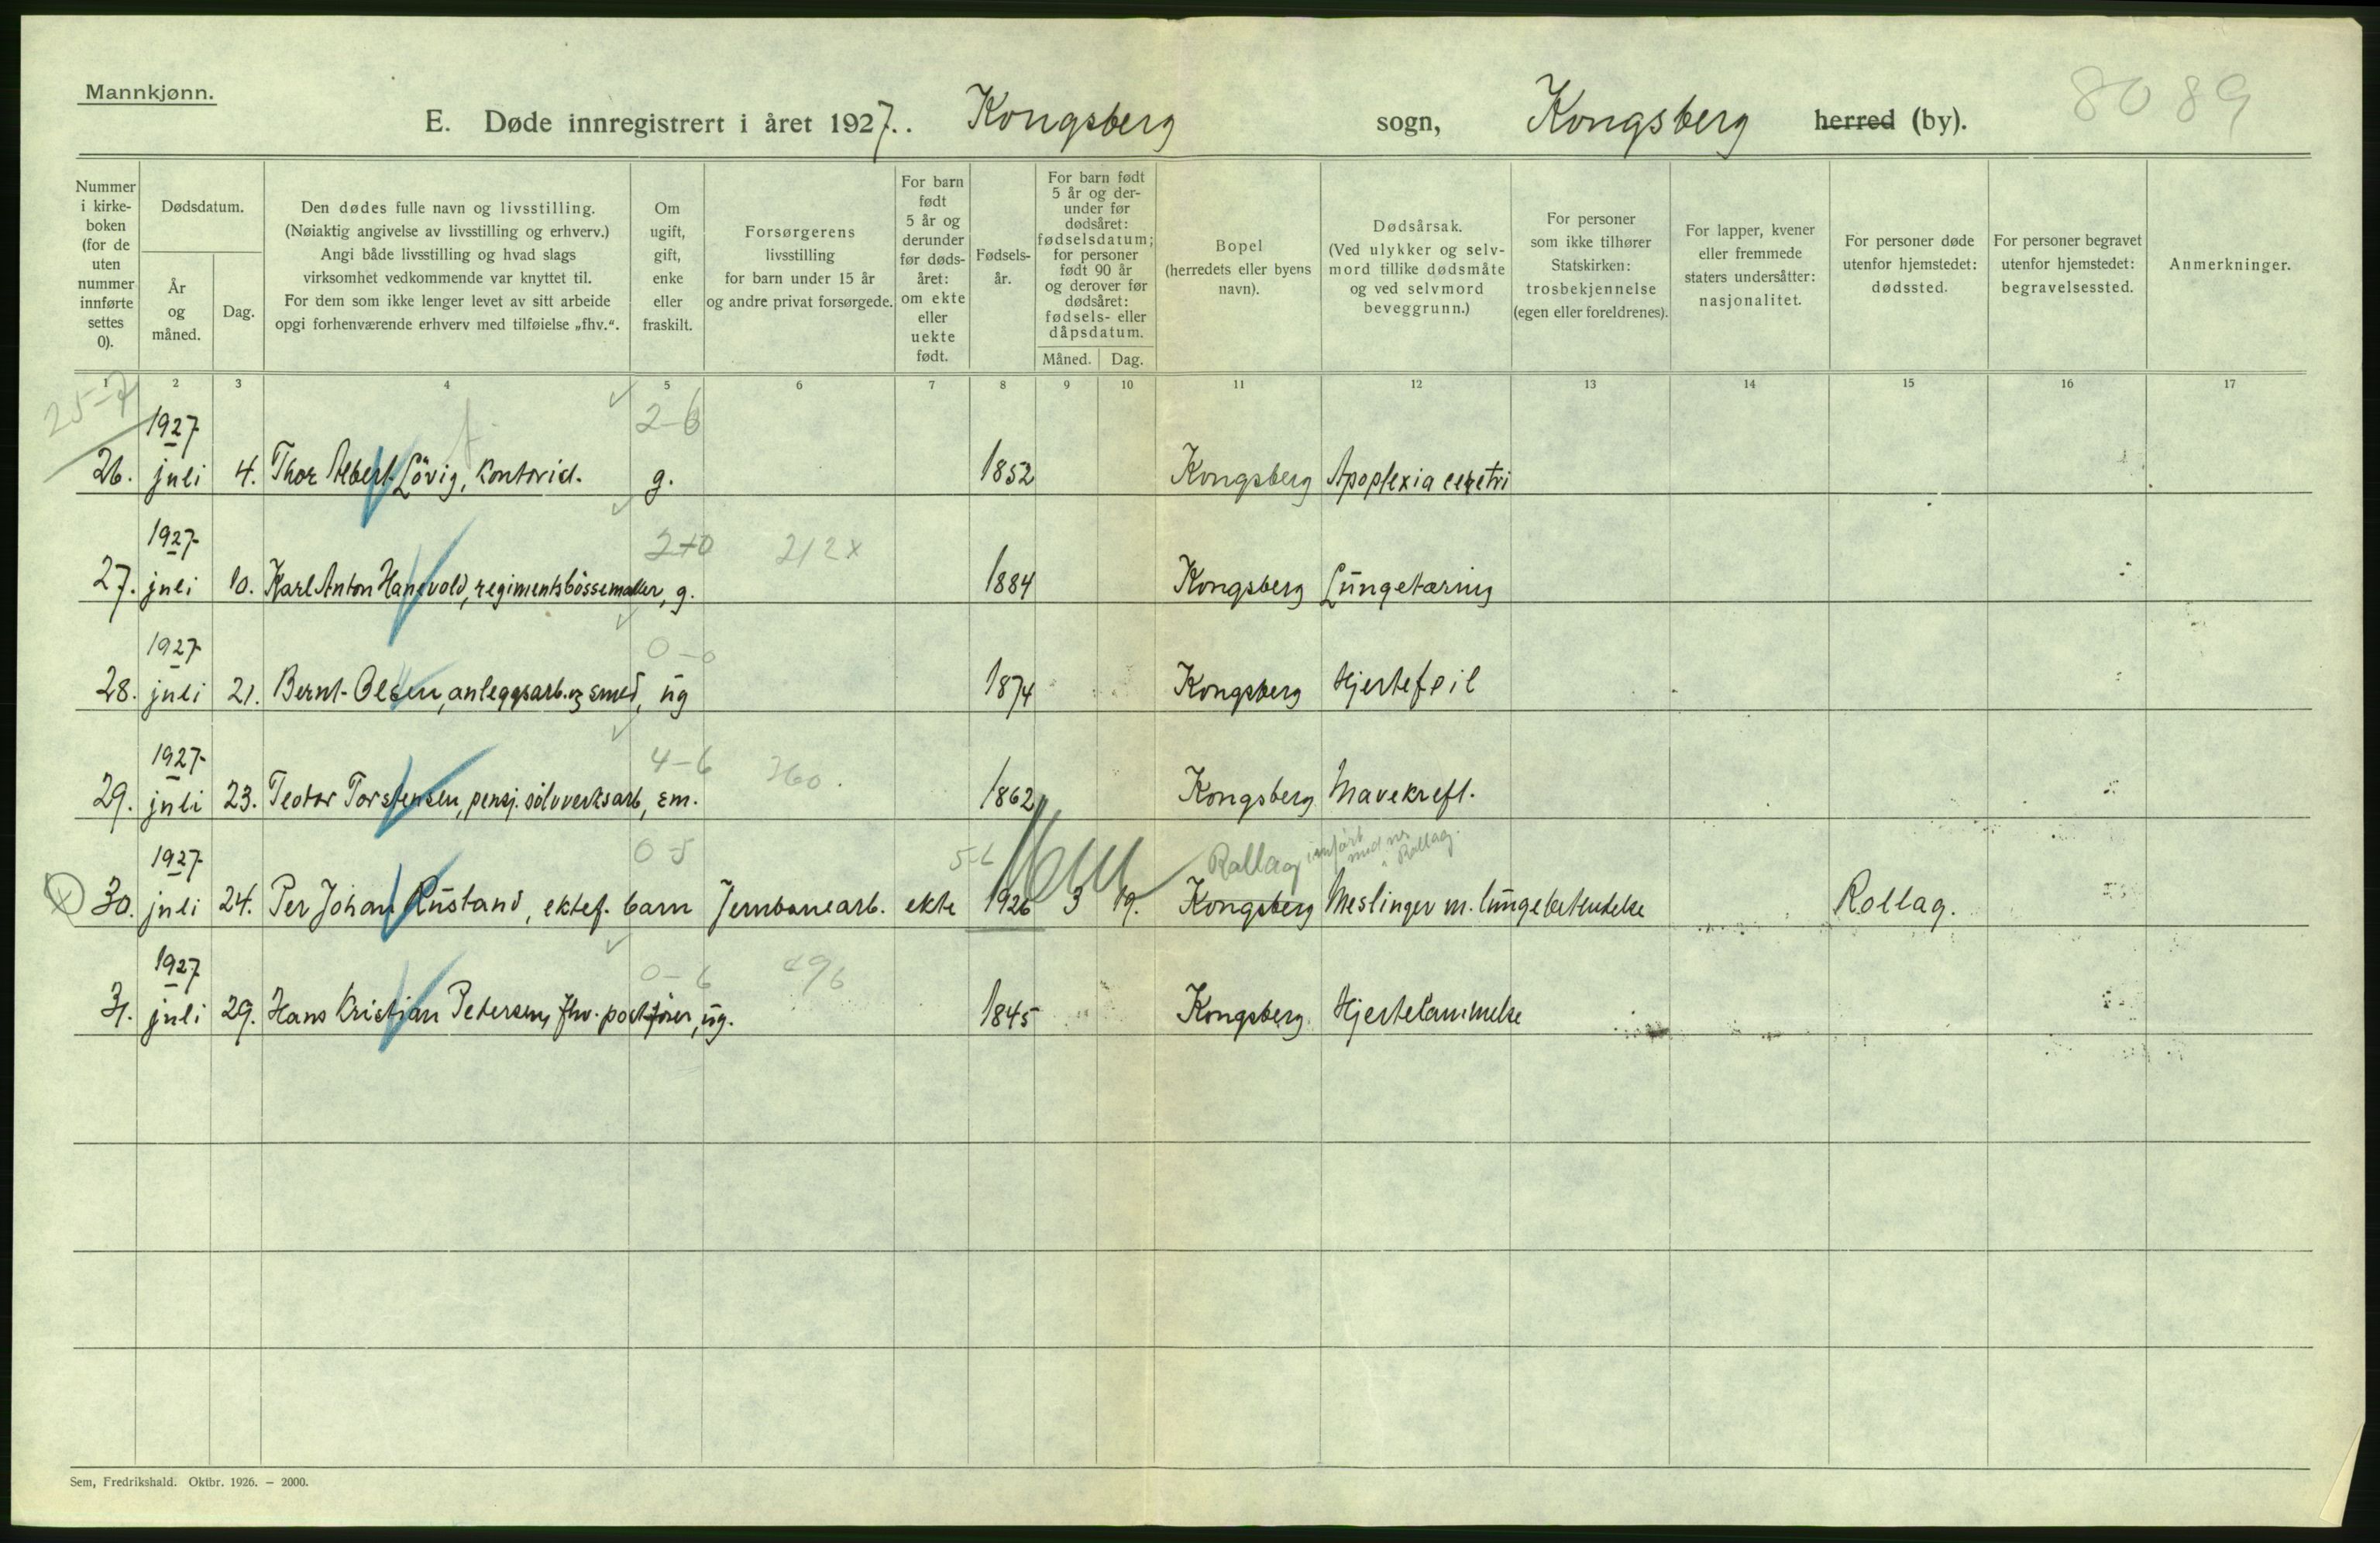 Mannkjønn.
E. Døde innregistrert i året 1927. Kongsberg sogn, Kongsberg herred (by).
8089
Nummer i kirke-boken (for de uten nummer innførte settes 0).
Dødsdatum.
År og måned.
Dag.
Den dødes fulle navn og livsstilling.
(Nøiaktig angivelse av livsstilling og erhverv.)
Angi både livsstilling og hvad slags
virksomhet vedkommende var knyttet til.
For dem som ikke lenger levet av sitt arbeide
opgi forhenværende erhverv med tilføielse „fhv.“.
Om ugift, gift, enke eller fraskilt.
Forsørgerens
livsstilling
for barn under 15 år
og andre privat forsørgede.
For barn født 5 år og derunder før døds-året: om ekte eller uekte født.
Fødsels-år.
For barn født 5 år og der-under før dødsåret: fødselsdatum; for personer født 90 år og derover før dødsåret: fødsels- eller dåpsdatum.
Måned.
Dag.
Bopel
(herredets eller byens
navn).
Dødsårsak.
(Ved ulykker og selv-
mord tillike dødsmåte
og ved selvmord
beveggrunn.)
For personer
som ikke tilhører
Statskirken:
trosbekjennelse
(egen eller foreldrenes).
For lapper, kvener
eller fremmede
staters undersåtter:
nasjonalitet.
For personer døde
utenfor hjemstedet:
dødssted.
For personer begravet
utenfor hjemstedet:
begravelsessted.
Anmerkninger.
1 2 3 4 5 6 7 8 9 10 11 12 13 14 15 16 17
25-7
1927 2-6
26. juli 4. Thor Albert Lövig, kontorid. g. 1852 Kongsberg Apoplexia
1927 2+0 212x
27. juli 10. Karl Anton Hansvold, regimentsbössemaker, g. 1884 Kongsberg Lungetæring
1927 0-0
28. juli 21. Bernt Olsen, anleggsarb. og smed, ug 1874 Kongsberg Hjertefeil
1927 4-6 760.
29. juli 23. Teodor Torstensen, pensj. sölvverksarb, em. 1862 Kongsberg Mavekreft.
1927 0-5 5-6 Rollag innført med nr Rollag.
30. juli 24. Per Johan Rustand, ektef. barn Jernbanearb. ekte 1926 3 19. Kongsberg Meslinger m. lungebetendelse Rollag.
1927 0-6 496
31. juli 29. Hans Kristian Petersen, fhv. postfører, ug. 1845 Kongsberg Hjertelammelse
Sem, Fredrikshald. Oktbr. 1926. — 2000.